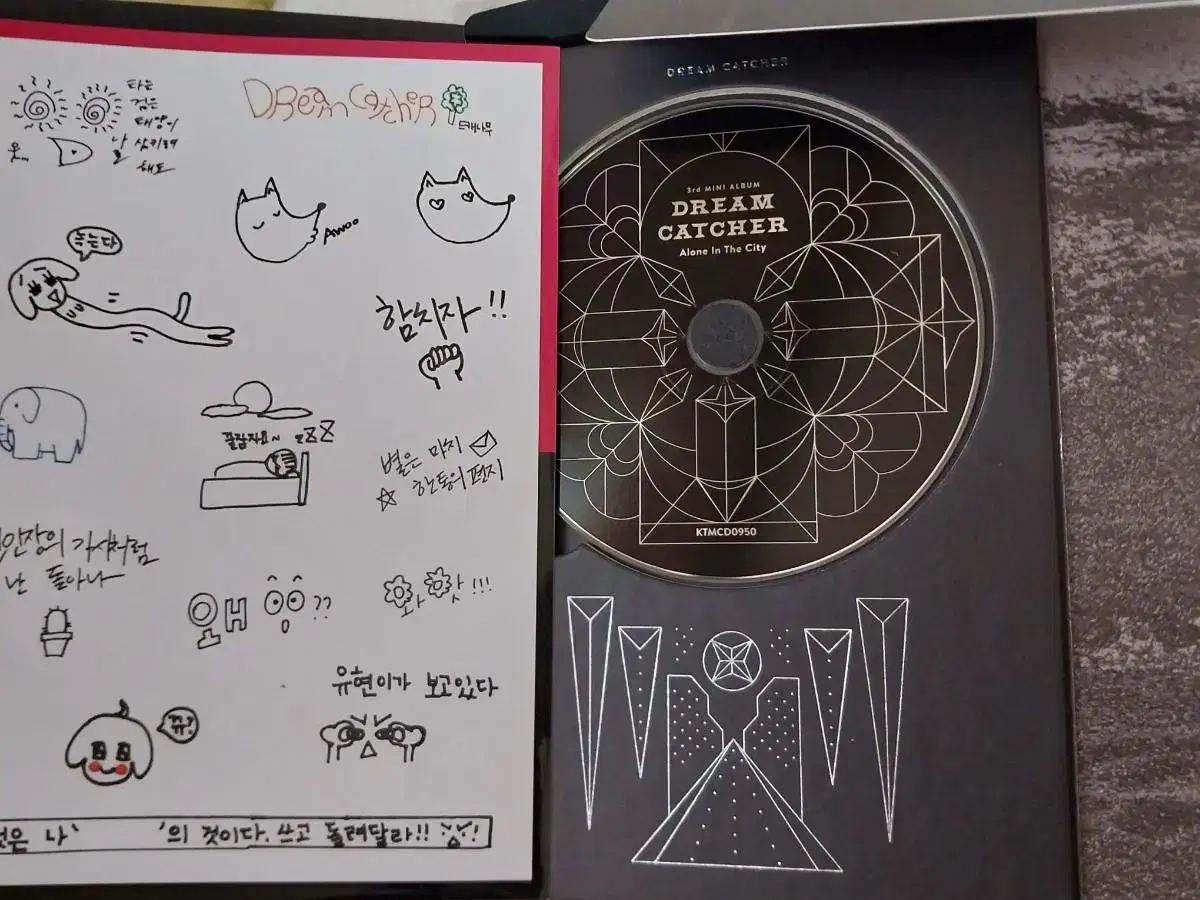 타는
검은
태양이
날 삼키려
해도
DReamCatcheR
드캐나무
AWOO
누눈다
함치자!!
꿀잠자요~ zZZ
별은 마치
한 통의 편지
인장의 가시처럼
난 돌아나
왜 ??
와 앗!!!
유현이가 보고있다
뀨?
것은 나'        '의 것이다. 쓰고 돌려달라!!
DREAM CATCHER
3rd MINI ALBUM
DREAM
CATCHER
Alone In The City
KTMCD0950